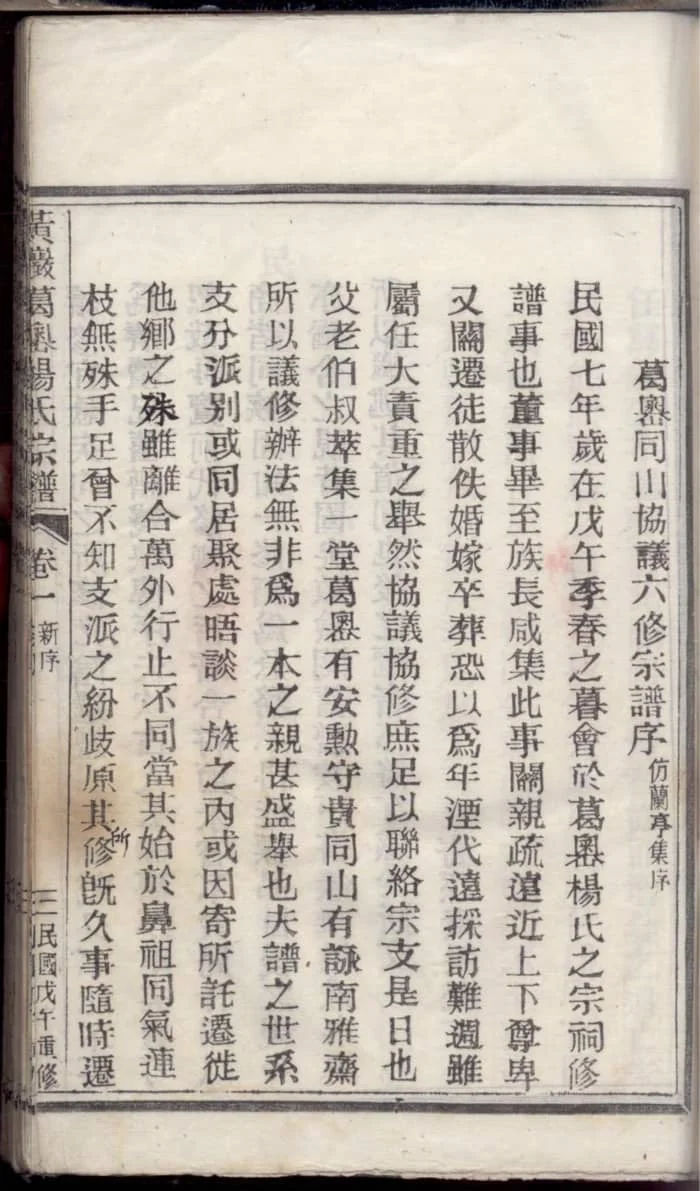 葛嶴同山協議六修宗譜序 仿蘭亭集序
民國七年歲在戊午季春之暮會於葛嶴楊氏之宗祠修
譜事也董事畢至族長咸集此事關親疏遠近上下尊卑
又關遷徒散佚婚嫁卒葬恐以爲年湮代遠採訪難週雖
屬任大責重之舉然協議協修庶足以聯絡宗支是日也
父老伯叔萃集一堂葛嶴有安勲守貴同山有詠南雅齋
所以議修辦法無非爲一本之親甚盛舉也夫譜之世系
支分派别或同居聚處晤談一族之內或因寄所託遷徙
他鄉之殊雖離合萬外行止不同當其始於鼻祖同氣連
枝無殊手足曾不知支派之紛歧原其所修旣久事隨時遷
黃巖葛嶴楊氏宗譜 卷一 新序 三 民國戊午重修